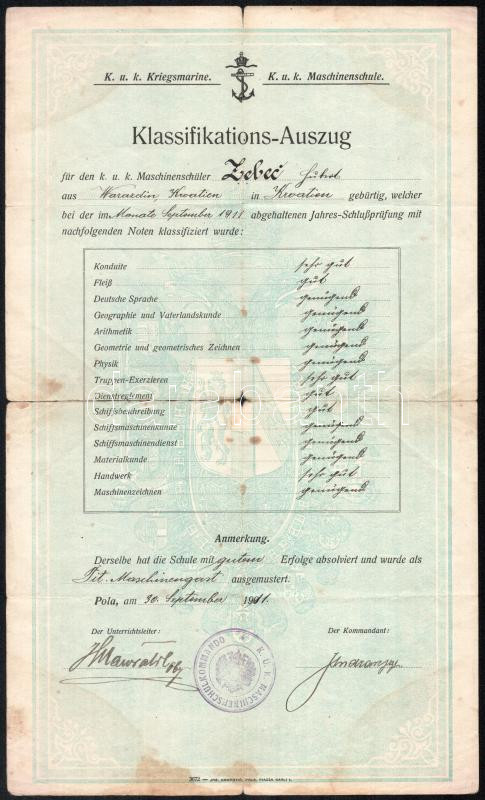 K. u. k. Kriegsmarine. K. u. k. Maschinenschule.
Klassifikations-Auszug
für den k. u. k. Maschinenschüler Zebeč Hubert
aus Warazdin, Kroatien in Kroatien gebürtig, welcher
bei der im Monate September 1911 abgehaltenen Jahres-Schlußprüfung mit
nachfolgenden Noten klassifiziert wurde:
Konduite sehr gut
Fleiß gut
Deutsche Sprache genügend
Geographie und Vaterlandskunde genügend
Arithmetik genügend
Geometrie und geometrisches Zeichnen genügend
Physik genügend
Truppen-Exerzieren sehr gut
Dienstreglement gut
Schiffsbeschreibung gut
Schiffsmaschinenkunde genügend
Schiffsmaschinendienst genügend
Materialkunde genügend
Handwerk sehr gut
Maschinenzeichnen genügend
Anmerkung.
Derselbe hat die Schule mit gutem Erfolge absolviert und wurde als
Tit. Maschinengast ausgemustert.
Pola, am 30. September 1911.
Der Unterrichtsleiter: Der Kommandant:
K. U. K. MASCHINENSCHULKOMMANDO